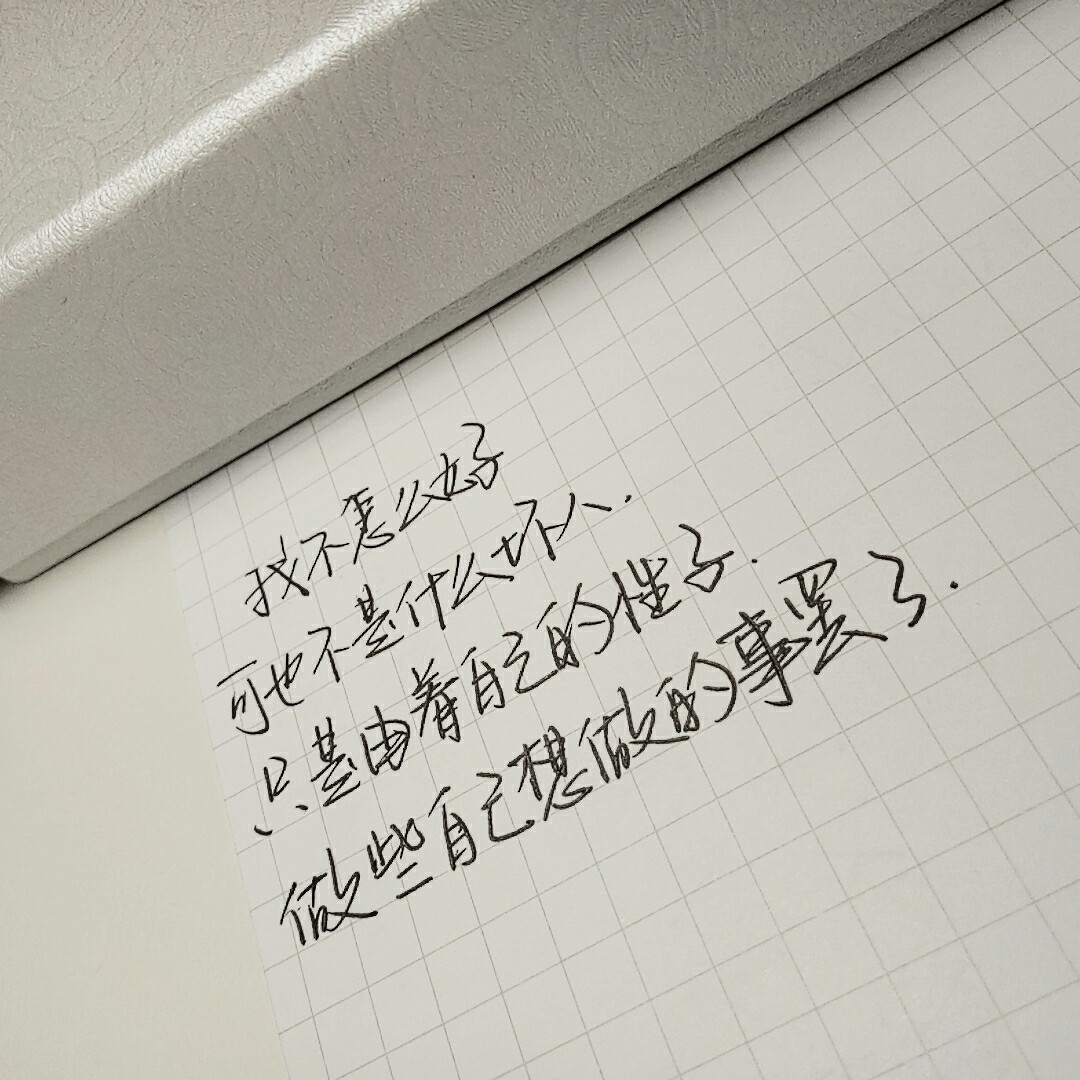 我不怎么好
可也不是什么坏人.
只是由着自己的性子.
做些自己想做的事罢了.